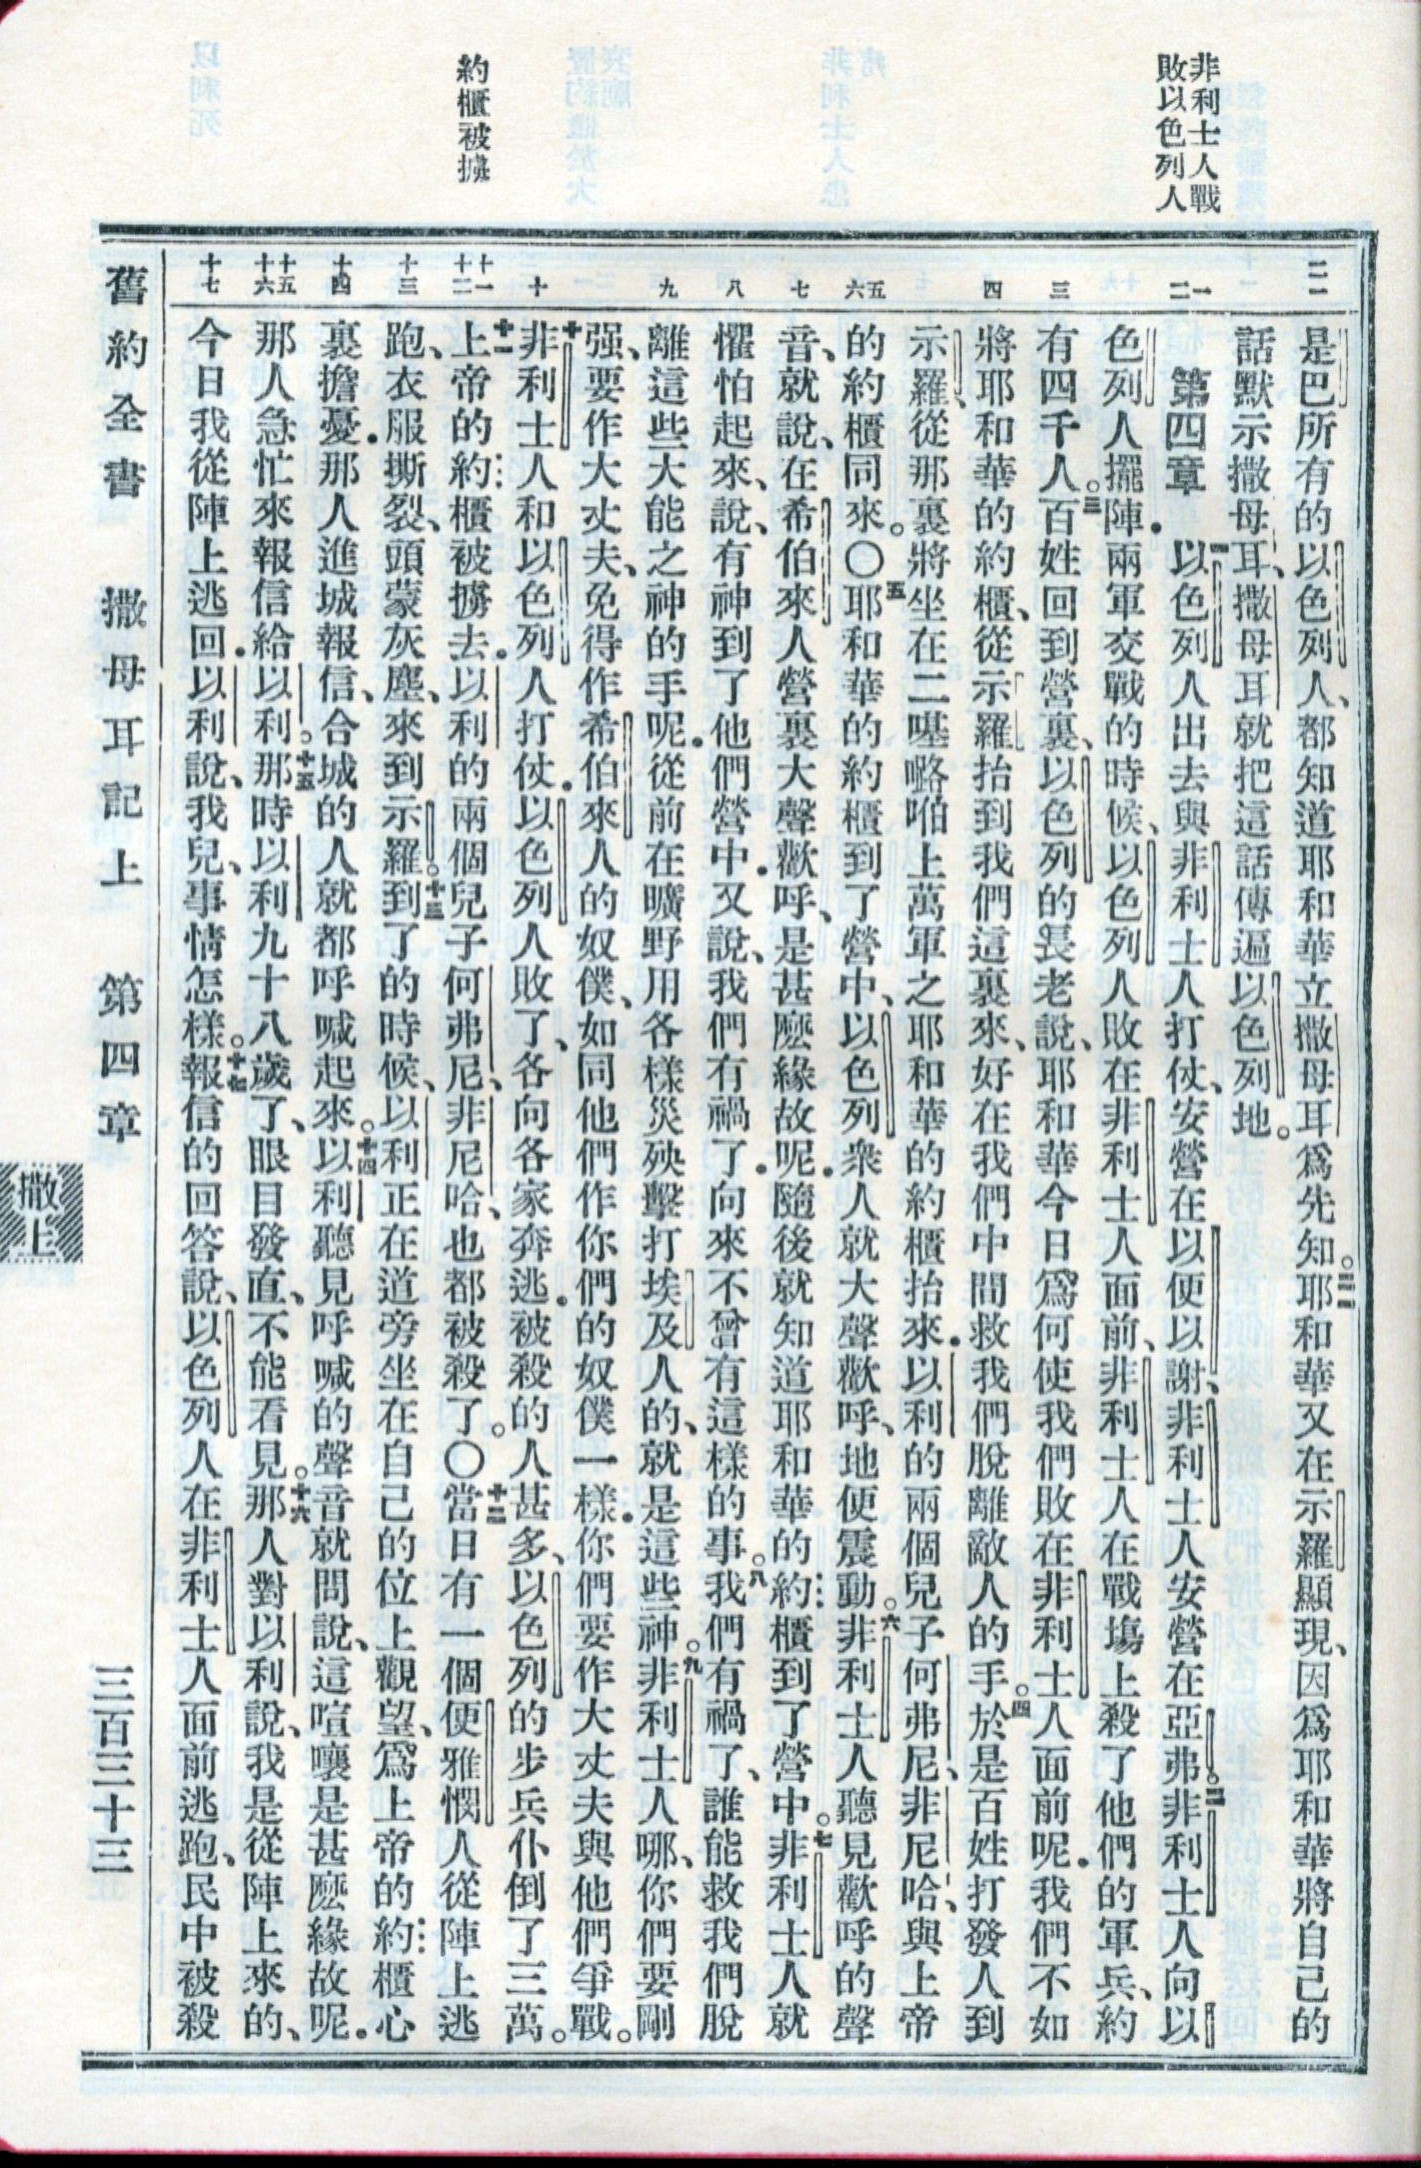 非利士人戰
敗以色列人
約櫃被擄
二一
是巴所有的以色列人、都知道耶和華立撒母耳爲先知。二一耶和華又在示羅顯現、因爲耶和華將自己的
話默示撒母耳、撒母耳就把這話傳遍以色列地。
一
二
第四章 一以色列人出去與非利士人打仗、安營在以便以謝、非利士人安營在亞弗。二非利士人向以
色列人擺陣．兩軍交戰的時候、以色列人敗在非利士人面前、非利士人在戰塲上殺了他們的軍兵、約
三
有四千人。三百姓回到營裏、以色列的長老說、耶和華今日爲何使我們敗在非利士人面前呢．我們不如
四
將耶和華的約櫃、從示羅抬到我們這裏來、好在我們中間救我們脫離敵人的手。四於是百姓打發人到
示羅、從那裏將坐在二𠼻𡀔啪上萬軍之耶和華的約櫃抬來．以利的兩個兒子何弗尼、非尼哈、與上帝
五
六
的約櫃同來。〇五耶和華的約櫃到了營中、以色列衆人就大聲歡呼、地便震動。六非利士人聽見歡呼的聲
七
音、就說、在希伯來人營裏大聲歡呼、是甚麽緣故呢．隨後就知道耶和華的約櫃到了營中。七非利士人就
八
懼怕起來、說、有神到了他們營中．又說、我們有禍了．向來不曾有這樣的事。八我們有禍了、誰能救我們脫
九
離這些大能之神的手呢．從前在曠野用各樣災殃擊打埃及人的、就是這些神。九非利士人哪、你們要剛
强、要作大丈夫、免得作希伯來人的奴僕、如同他們作你們的奴僕一樣．你們要作大丈夫與他們爭戰。
十
十非利士人和以色列人打仗．以色列人敗了、各向各家奔逃．被殺的人甚多、以色列的步兵仆倒了三萬。
十一
十二
十一上帝的約櫃被擄去．以利的兩個兒子何弗尼、非尼哈、也都被殺了。〇十二當日有一個便雅憫人從陣上逃
十三
跑、衣服撕裂、頭蒙灰塵、來到示羅。十三到了的時候、以利正在道旁坐在自己的位上觀望、爲上帝的約櫃心
十四
裏擔憂．那人進城報信、合城的人就都呼喊起來。十四以利聽見呼喊的聲音就問說、這喧嚷是甚麽緣故呢．
十五
十六
那人急忙來報信給以利。十五那時以利九十八歲了、眼目發直、不能看見。十六那人對以利說、我是從陣上來的、
十七
今日我從陣上逃回．以利說、我兒、事情怎樣。十七報信的回答說、以色列人在非利士人面前逃跑、民中被殺
舊約全書 撒母耳記上 第四章 三百三十三
撒上